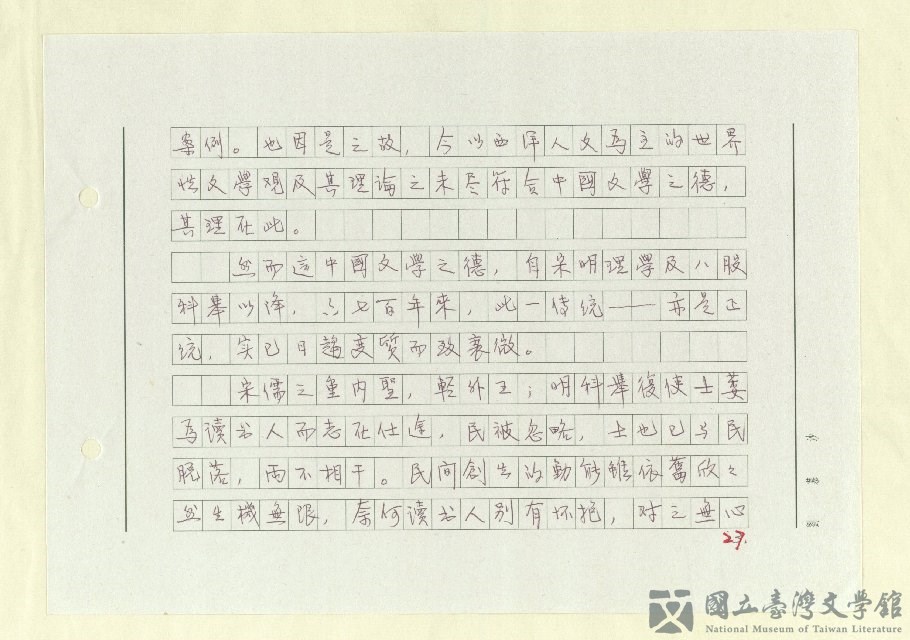 案例。也因是之故，今以西洋人文為主的世界
性文學观及其理論之未尽符合中國文學之德，
其理在此。
然而這中國文學之德，自宋明理學及八股
科舉以降，六七百年來，此一传统——亦是正
统，实已日趋变质而致衰微。
宋儒之重內聖，輕外王；明科舉復使士萎
為讀书人而志在仕途，民被忽略，士也已与民
脱落，両不相干。民间創生的動能雖依舊欣々
然生機無限，奈何讀书人別有怀抱，对之無心
27.
國立臺灣文學館
National Museum of Taiwan Literature